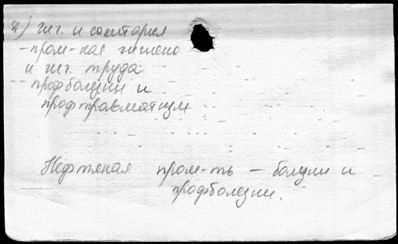 2) гиг. и санитария
- пром-ная гигиена
и гиг. труда
- профболезни и
профтравматизм
Нефтяная пром-ть — болезни и
профболезни.